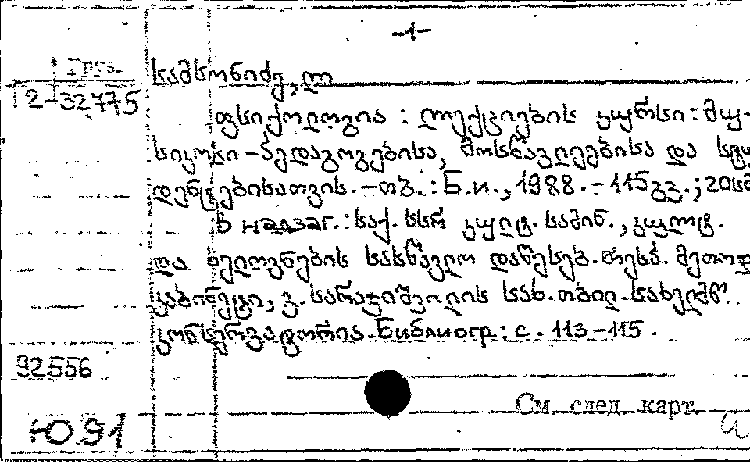 -1-
Груз.
12-32775
სამსონიძე, ლ
ფსიქოლოგია : ლექციების კურსი : მუ-
სიკოსი-პედაგოგებისა, მოსწავლეებისა და სტუ
დენტებისათვის. - თბ. : Б.и., 1988. - 115გვ.; 20სმ
В надзаг. : საქ. სსრ კულტ. სამინ., კულტ.
და ხელოვნების სასწავლო დაწესებ. რესპ. მეთოდ
კაბინეტი, ვ. სარაჯიშვილის სახ. თბილ. სახელმწ.
კონსერვატორია. Библиогр : с. 113-115.
92556
См. след. карт.
Ю91